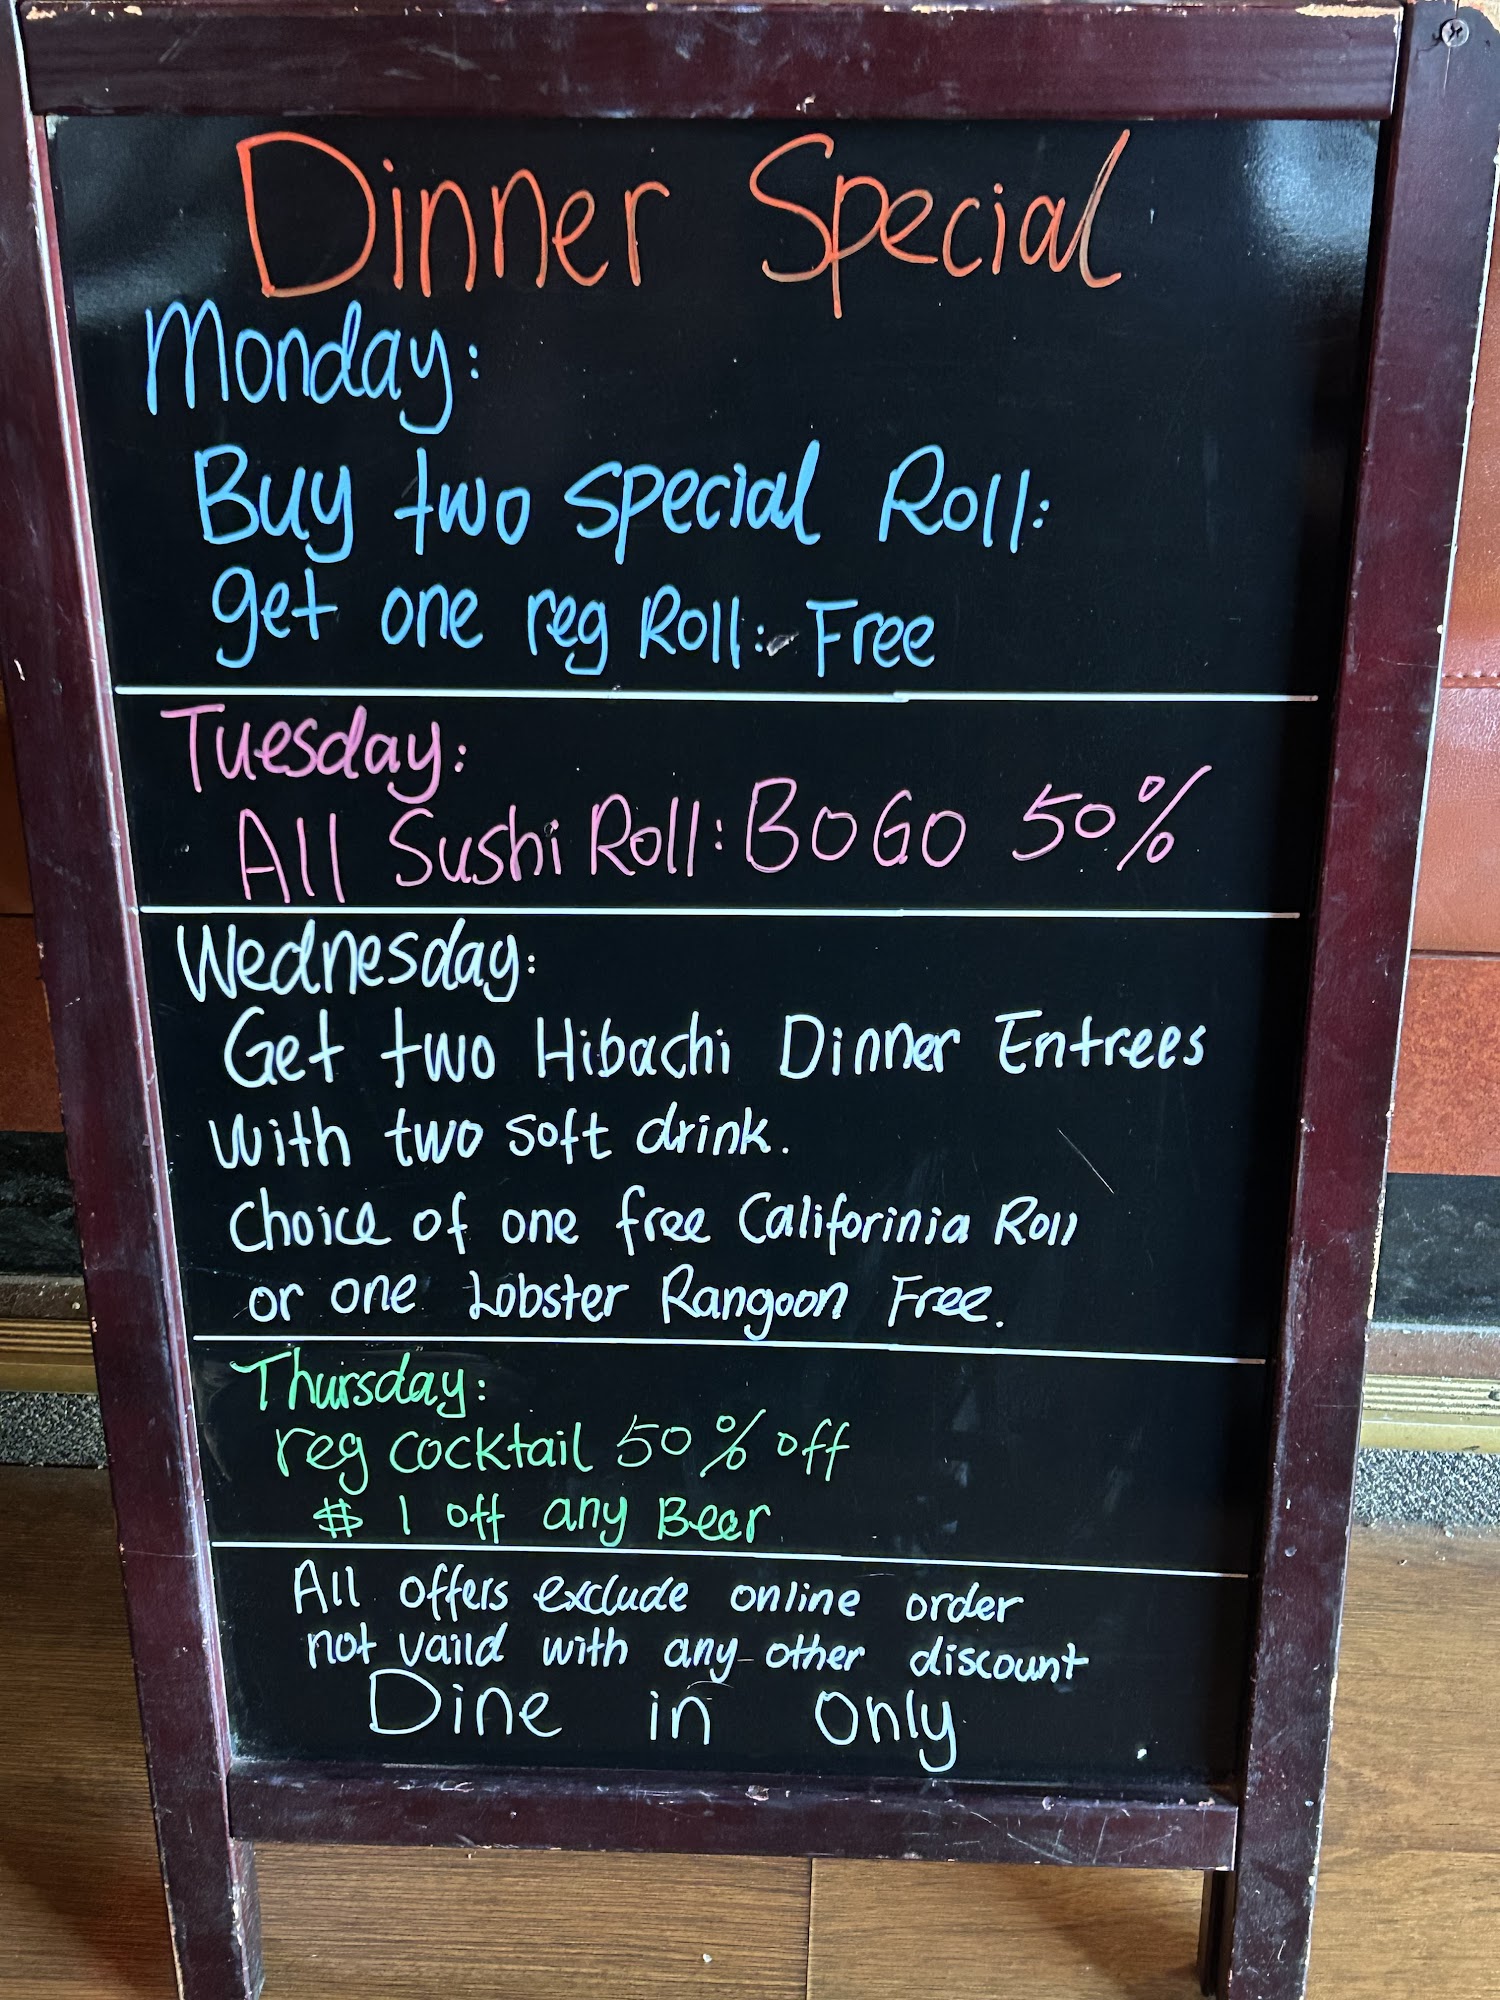 Dinner Special
Monday:
Buy two special Roll:
get one reg Roll: Free
Tuesday:
All Sushi Roll: BOGO 50%
Wednesday:
Get two Hibachi Dinner Entrees
with two soft drink.
choice of one free Califorinia Roll
or one Lobster Rangoon Free.
Thursday:
reg cocktail 50% off
$1 off any Beer
All offers exclude online order
not vaild with any other discount
Dine in only